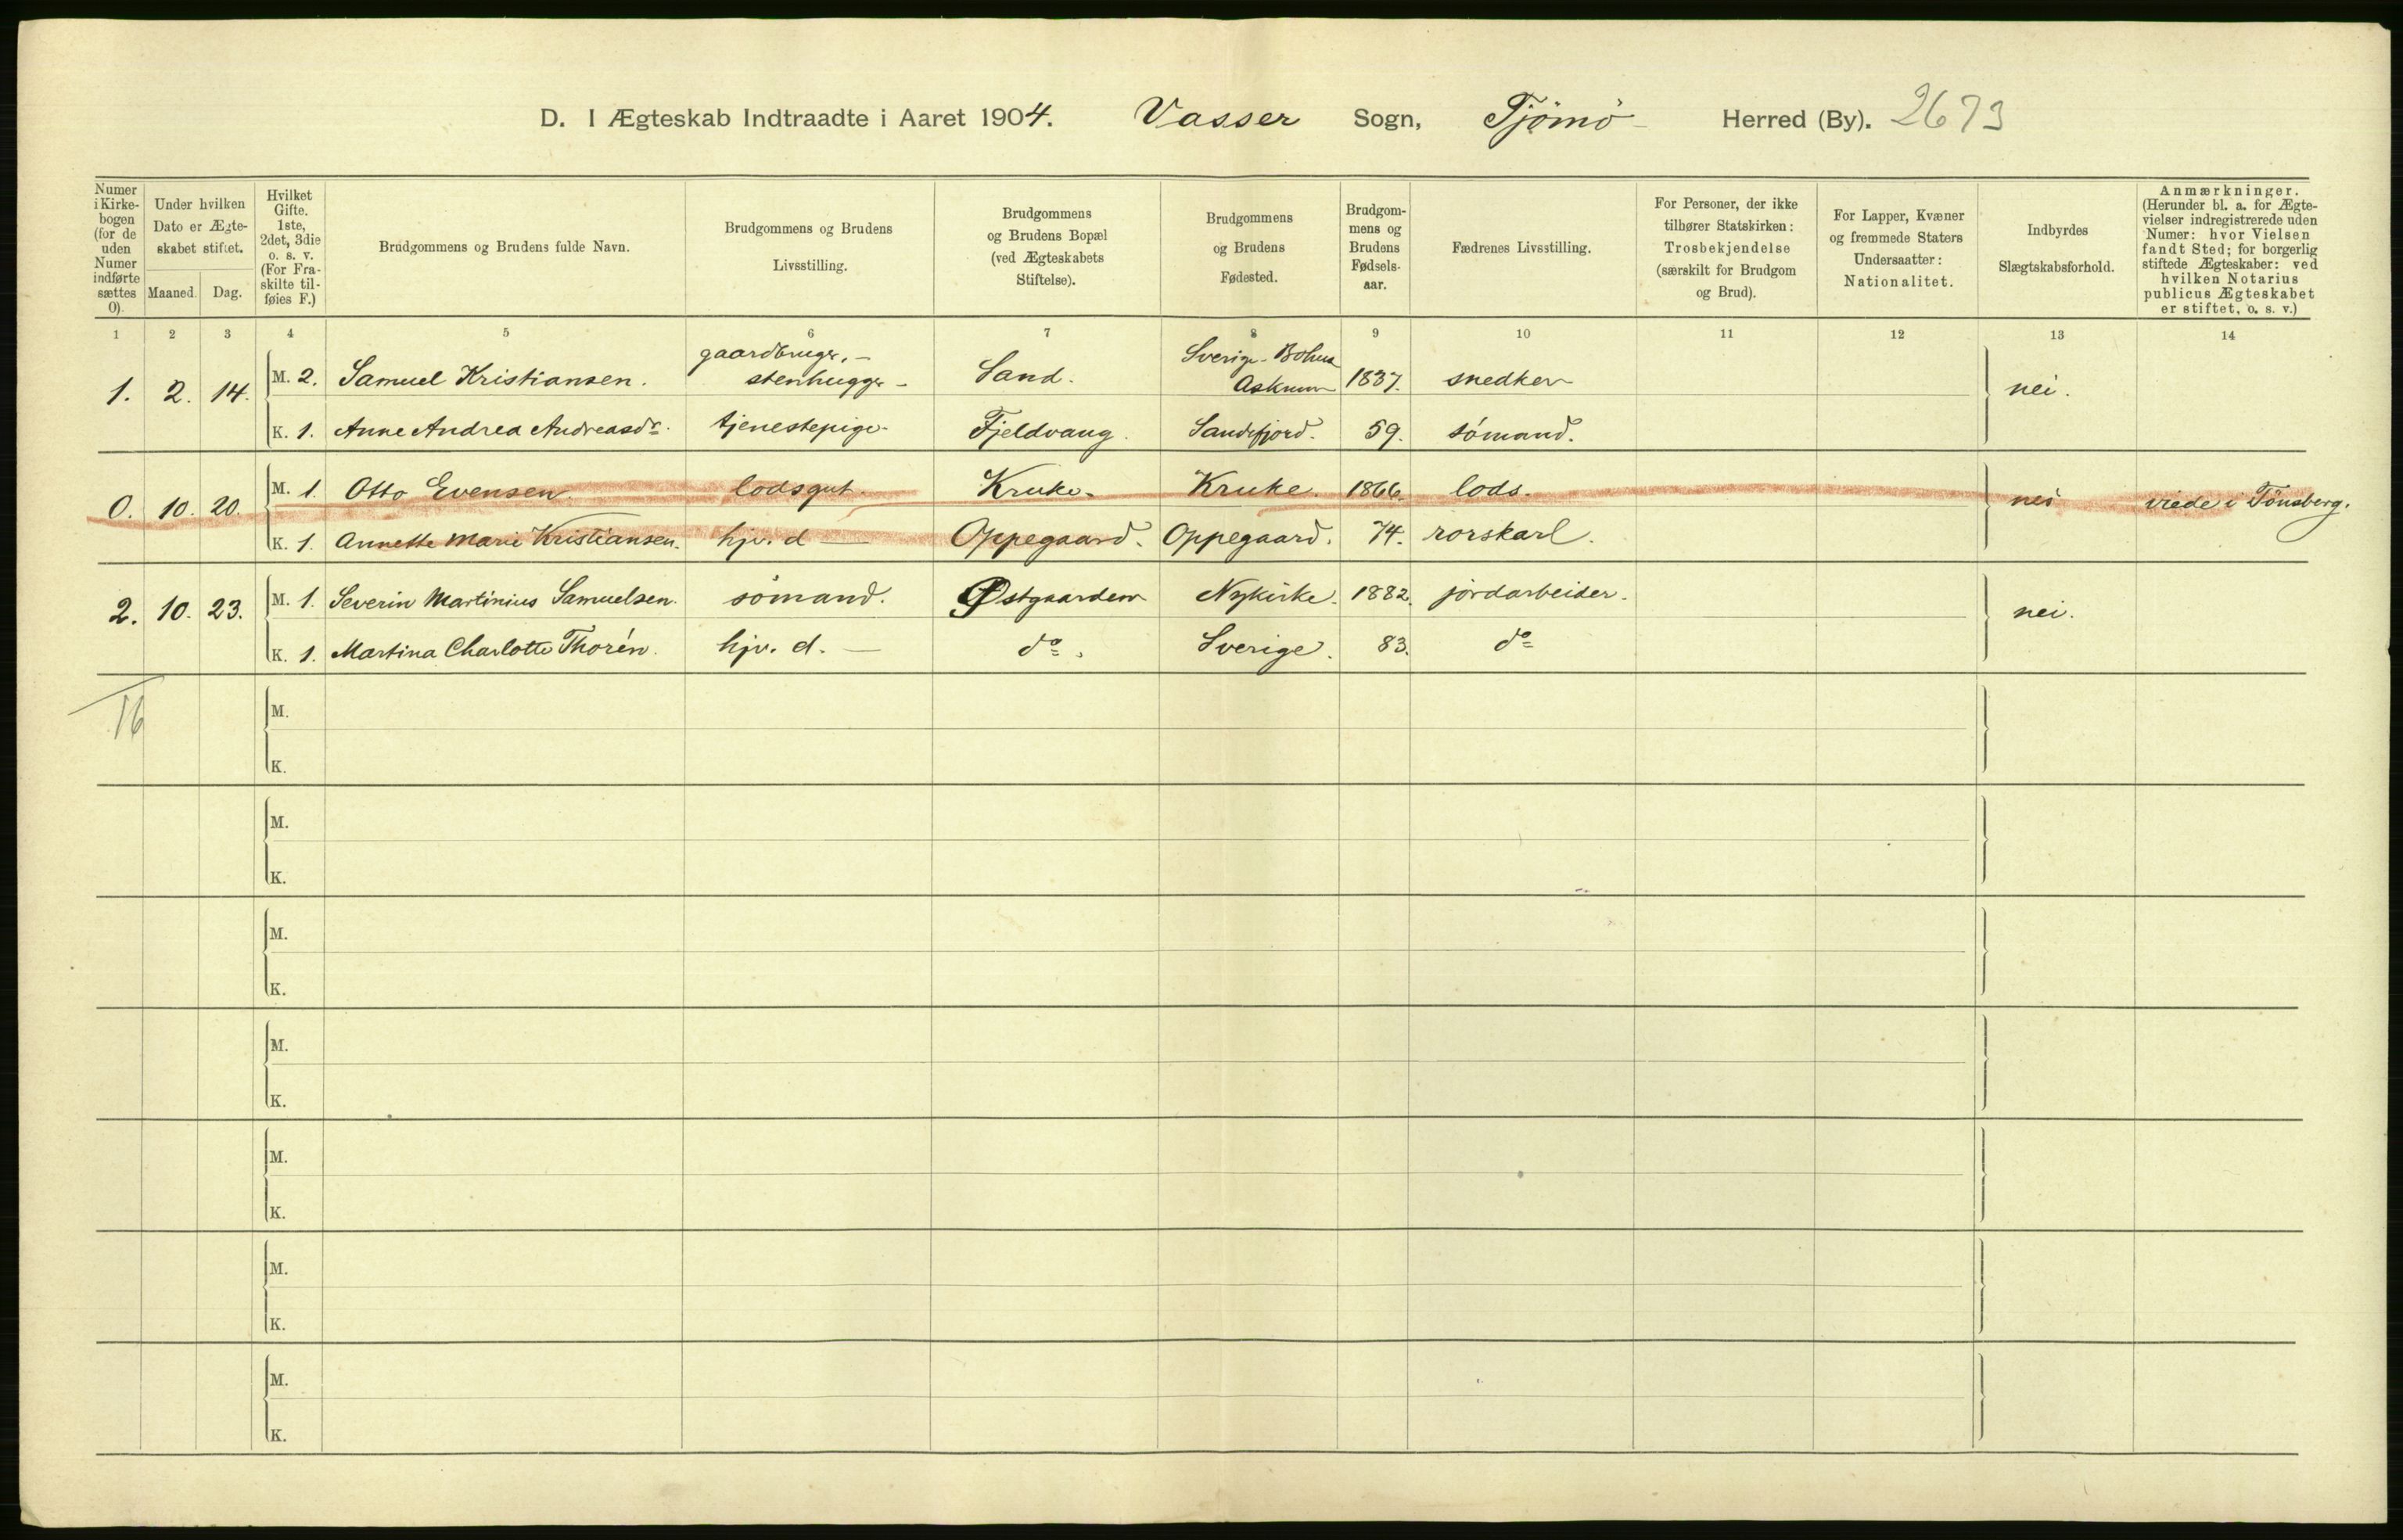 D. I Ægteskab Indtraadte i Aaret 1904. Vasser Sogn, Tjömö Herred (By). 2673
Numer i Kirke-bogen (for de uden Numer indførte sættes 0).
Under hvilken Dato er Ægte-skabet stiftet.
Maaned. Dag.
Hvilket Gifte. 1ste, 2det, 3die o. s. v. (For Fra-skilte til-føies F.)
Brudgommens og Brudens fulde Navn.
Brudgommens og Brudens Livsstilling.
Brudgommens og Brudens Bopæl (ved Ægteskabets Stiftelse).
Brudgommens og Brudens Fødested.
Brudgom-mens og Brudens Fødsels-aar.
Fædrenes Livsstilling.
For Personer, der ikke tilhører Statskirken: Trosbekjendelse (særskilt for Brudgom og Brud).
For Lapper, Kvæner og fremmede Staters Undersaatter: Nationalitet.
Indbyrdes Slægtskabsforhold.
Anmærkninger. (Herunder bl. a. for Ægte-vielser indregistrerede uden Numer: hvor Vielsen fandt Sted; for borgerlig stiftede Ægteskaber: ved hvilken Notarius publicus Ægteskabet er stiftet, o. s. v.)
1 2 3 4 5 6 7 8 9 10 11 12 13 14
gaardbruger, - Sverige - Bohus
1. 2. 14. M. 2. Samuel Kristiansen. stenhugger - Sand. Askum 1837. snedker nei.
K. 1. Anne Andrea Andreasdr. tjenestepige- Fjeldvang. Sandefjord. 59. sömand.
0. 10. 20. M. 1. Otto Evensen lodsgut. Kruke. Kruke. 1866. lods. nei viede i Tönsberg.
K. 1. Annette Marie Kristiansen. hjv. d — Oppegaard. Oppegaard. 74. rorskarl.
2. 10. 23. M. 1. Severin Martinius Samuelsen. sömand. Østgaarden Nykirke. 1882. jordarbeider. nei.
K. 1. Martina Charlotte Thorén. hjv. d. — do. Sverige. 83. do
16
M.
K.
M.
K.
M.
K.
M.
K.
M.
K.
M.
K.
M.
K.